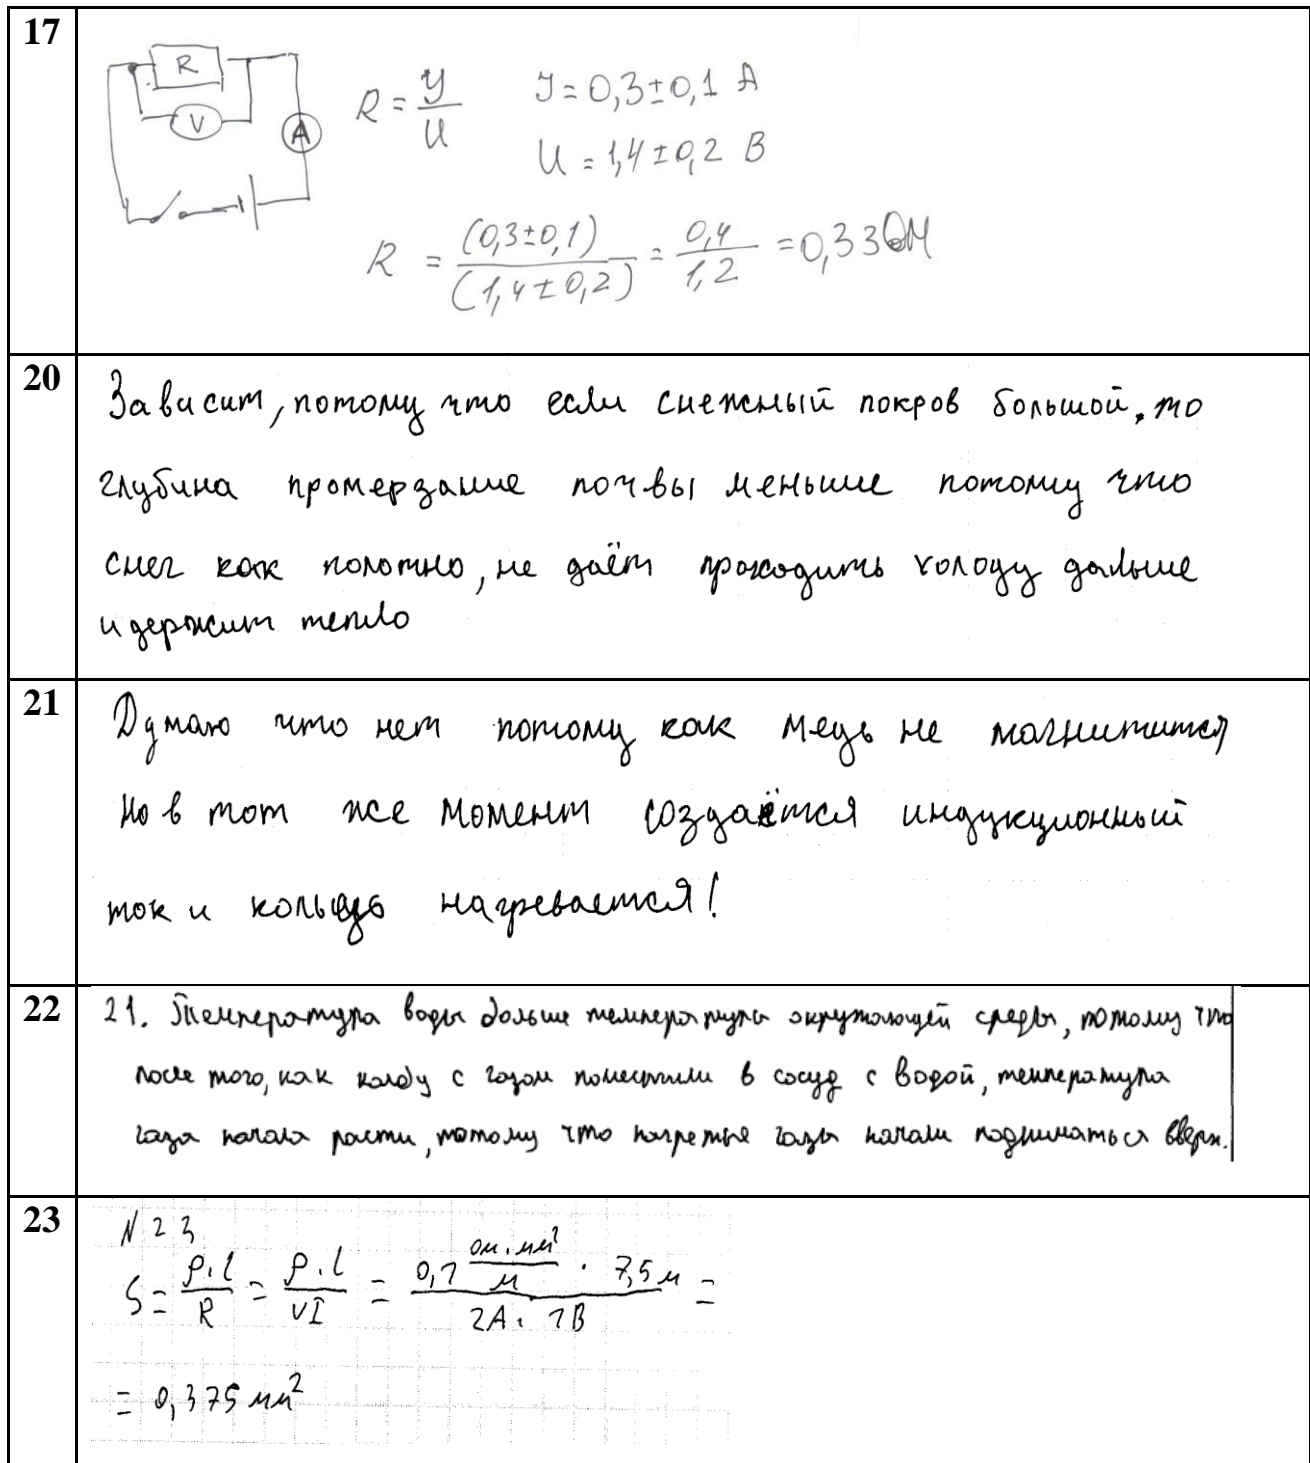 17
R
V
A
R = У/U
У = 0,3±0,1 А
U = 1,4±0,2 В
R = (0,3±0,1)/(1,4±0,2) = 0,4/1,2 = 0,33 Ом
20
Зависит, потому что если снежный покров большой, то
глубина промерзание почвы меньше потому что
снег как полотно, не даёт проходить холоду дальше
и держит тепло
21
Думаю что нет потому как медь не магнитится
Но в тот же момент создаётся индукционный
ток и кольцо нагревается!
22
21. Температура воды больше температуры окружающей среды, потому что
после того, как колбу с газом поместили в сосуд с водой, температура
газа начала расти, потому что нагретые газы начали подниматься вверх.
23
N 23
S = ρ.l/R = ρ.l/VI = 0,1 Ом·мм²/м · 7,5м / 2А · 1В =
= 0,375 мм²